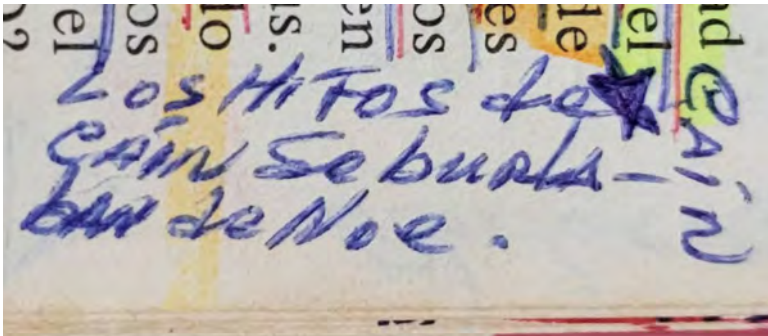 Los HiJos de
CAÍN Se burla-
ban de Noe.
CAÍN